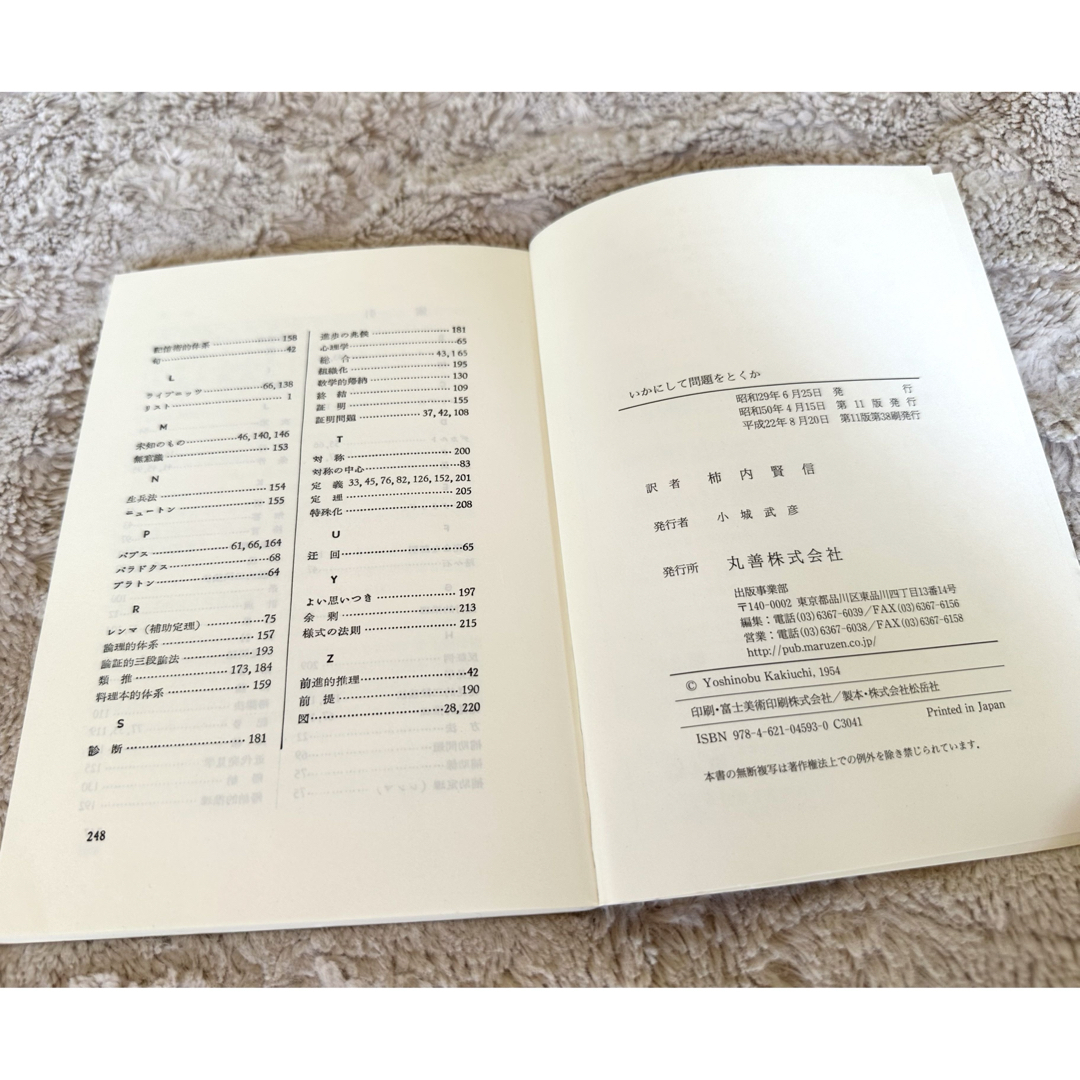 範術的体系 158
句 42
L
ライプニッツ 66, 138
リスト 1
M
未知のもの 46, 140, 146
無意識 153
N
生兵法 154
ニュートン 155
P
パプス 61, 66, 164
パラドクス 68
プラトン 64
R
レンマ（補助定理） 75
論理的体系 157
論証的三段論法 193
類 推 173, 184
料理本的体系 159
S
診 断 181
進歩の兆候 181
心理学 65
綜 合 43, 165
組織化 195
数学的帰納 130
終 結 109
証 明 155
証明問題 37, 42, 108
T
対 称 200
対称の中心 83
定 義 33, 45, 76, 82, 126, 152, 201
定 理 205
特殊化 208
U
迂 回 65
Y
よい思いつき 197
余 剰 213
様式の法則 215
Z
前進的推理 42
前 提 190
図 28, 220
248
いかにして問題をとくか
昭和29年6月25日 発 行
昭和50年4月15日 第11版発行
平成22年8月20日 第11版第38刷発行
訳 者 柿 内 賢 信
発行者 小 城 武 彦
発行所 丸善株式会社
出版事業部
〒140-0002 東京都品川区東品川四丁目13番14号
編集：電話(03)6367-6039／FAX(03)6367-6156
営業：電話(03)6367-6038／FAX(03)6367-6158
http://pub.maruzen.co.jp/
© Yoshinobu Kakiuchi, 1954
印刷・富士美術印刷株式会社／製本・株式会社松岳社
ISBN 978-4-621-04593-0 C3041 Printed in Japan
本書の無断複写は著作権法上での例外を除き禁じられています.